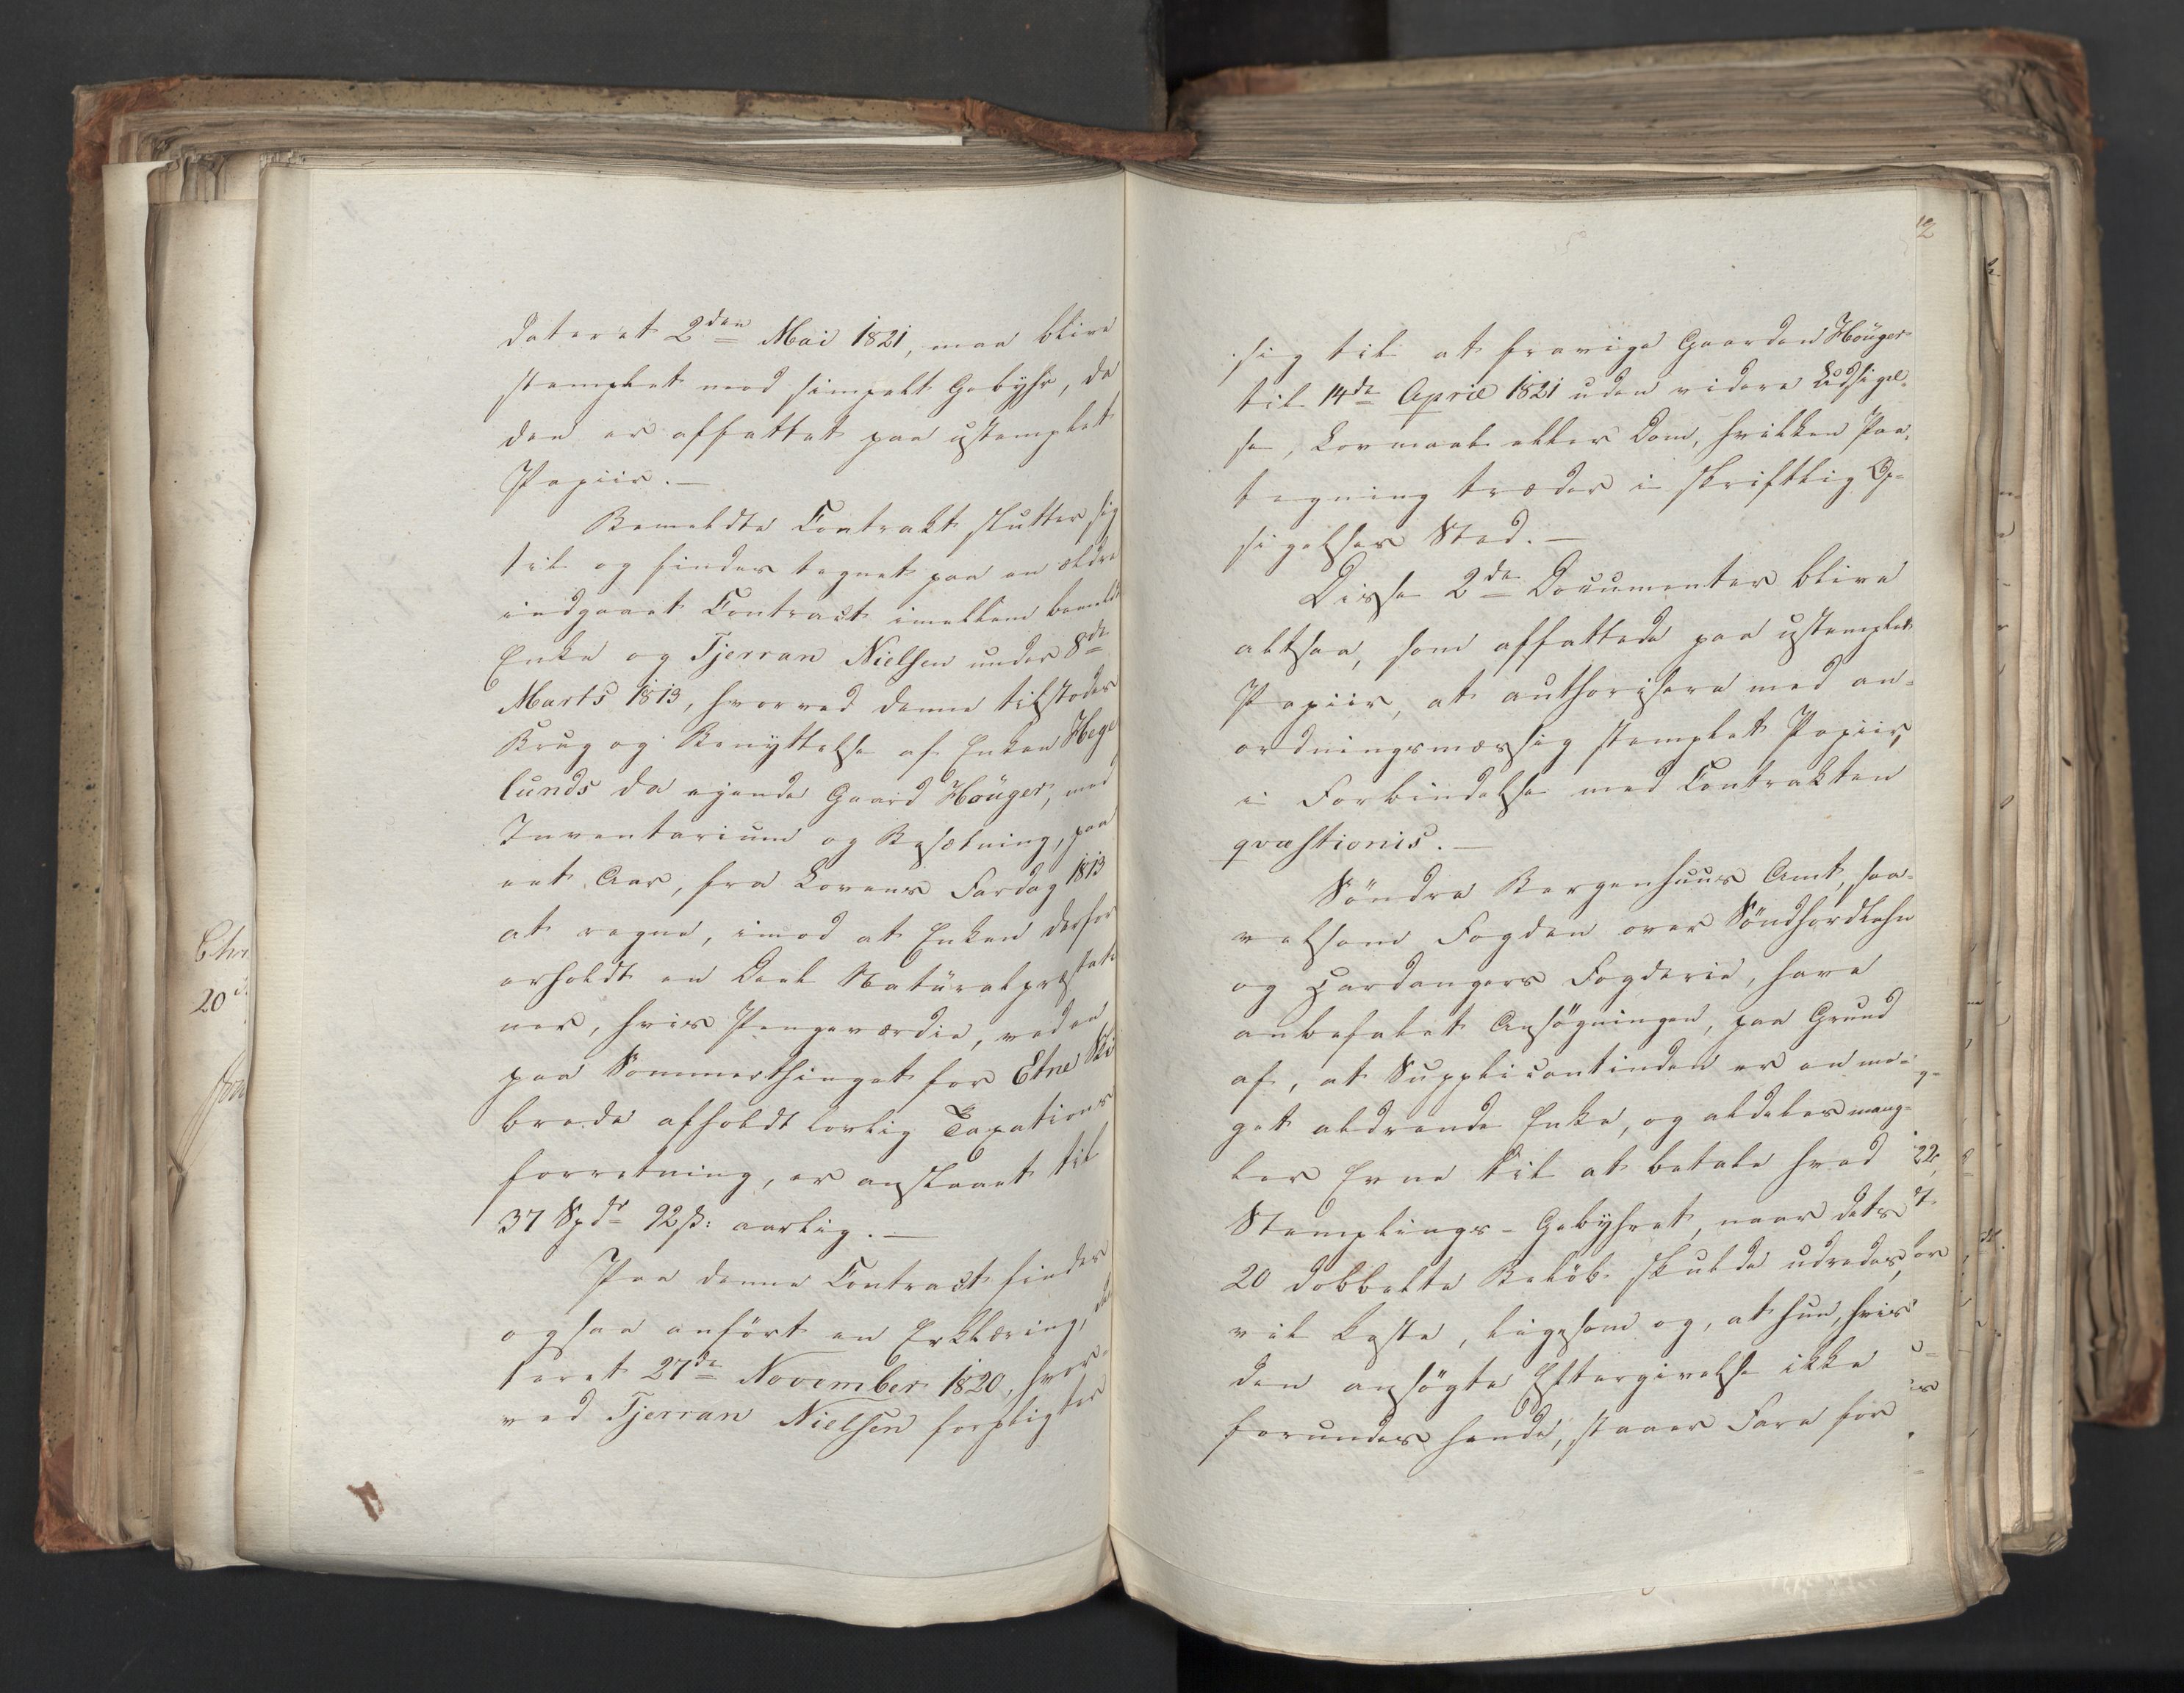 dateret 2den Mai 1821, maa blive
stemplet med simpelt Gebyhr, da
den er affattet paa ustemplet
Papiir. —
Bemeldte Contrakt slutter sig
til og findes tegnet paa en ældre
indgaaet Contract imellem bemeldte
Enke og Tjerran Nielsen under 8de
Marts 1813, hvorved denne tilstodes
Brug og Benyttelse af Enken Hege
lunds da ejende Gaard Houger, med
Inventarium og Besætning, paa
eet Aar, fra Lovens Fardag 1813
at regne, imod at Enken derfor
erholdt en Deel Naturalpræstati
oner, hvis Pengeværdie, ved en
paa Sommerthinget for Etne Ski
brede afholdt lovlig Taxations
forretning, er anslaaet til
37 Spdr 92 ß: aarlig. —
Paa denne Contract findes
ogsaa anført en Erklæring, da
teret 27de November 1820, hvor-
ved Tjerran Nielsen forpligter
2
sig til at fravige Gaarden Houger
til 14de April 1821 uden videre Udsigel-
se, Lovmaal eller Dom, hvilken Paa-
tegning træder i skriftlig Op-
sigelses Sted. —
Disse 2de Documenter blive
altsaa, som affattede paa ustemplet
Papiir, at authorisere med an-
ordningsmæssig stemplet Papiir,
i Forbindelse med Contrakten
qvæstionis. —
Söndre Bergenhuus Amt, saa-
velsom Fogden over Söndhordlehn
og Hardangers Fogderie, have
anbefalet Ansögningen, paa Grund
af, at Supplicantinden er en me-
get aldrende Enke, og aldeles mang-
ler Evne til at betale hvad
Stemplings-Gebyhret, naar dets
20 dobbelte Belöb skulde udredes,
vil koste, ligesom og, at hun, hvis
den ansögte Eftergivelse ikke
forundes hende, staaer Fare for
Chri
20